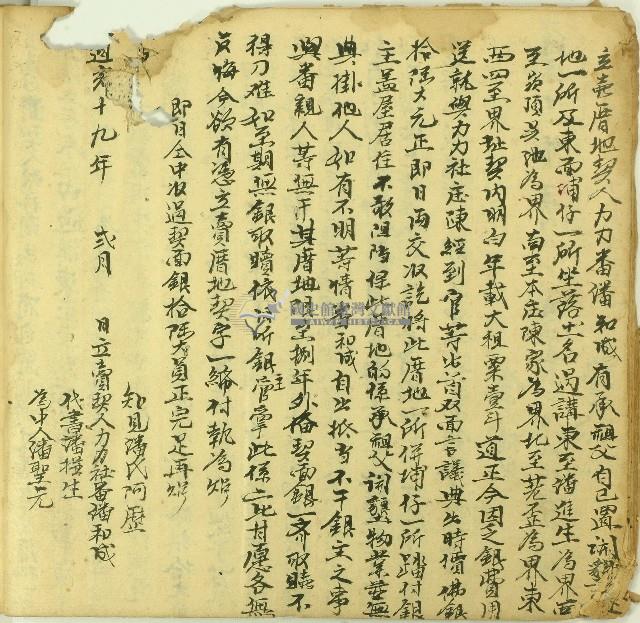 立賣厝地契人力力番潘和成有承祖父自己置
地一所及東面埔仔一所坐落土名過講東至潘進生為界西
至崁頂長池為界南至本庄陳家為界北至荒歪為界東
西四至界址契內明白年載大租粟壹斗道正今因乏銀費用
送就與力力社庄陳經到官等出首双面言議典出時價佛銀
拾陸大元正即日両交收訖將此厝地一所併埔仔一所踏付銀
主盖屋居住不敢阻隔保此厝地的係承祖父詞墾物業並無
典掛他人如有不明等情和成自出抵當不干銀主之事
與番親人等無干其厝地限至捌年外俻契面銀一齊取贖不
得刁难如至期無銀取贖依一所銀主管掌此係二比甘愿各無
反悔今欲有憑立賣厝地契字一紙付執為炤
即日仝中收過契面銀拾陸大員正完足再炤
光十九年 弍月 日立賣契人力力社番潘和成
知見潘氏阿歷
代書潘擇生
為中人潘聖元
國史館臺灣文獻館